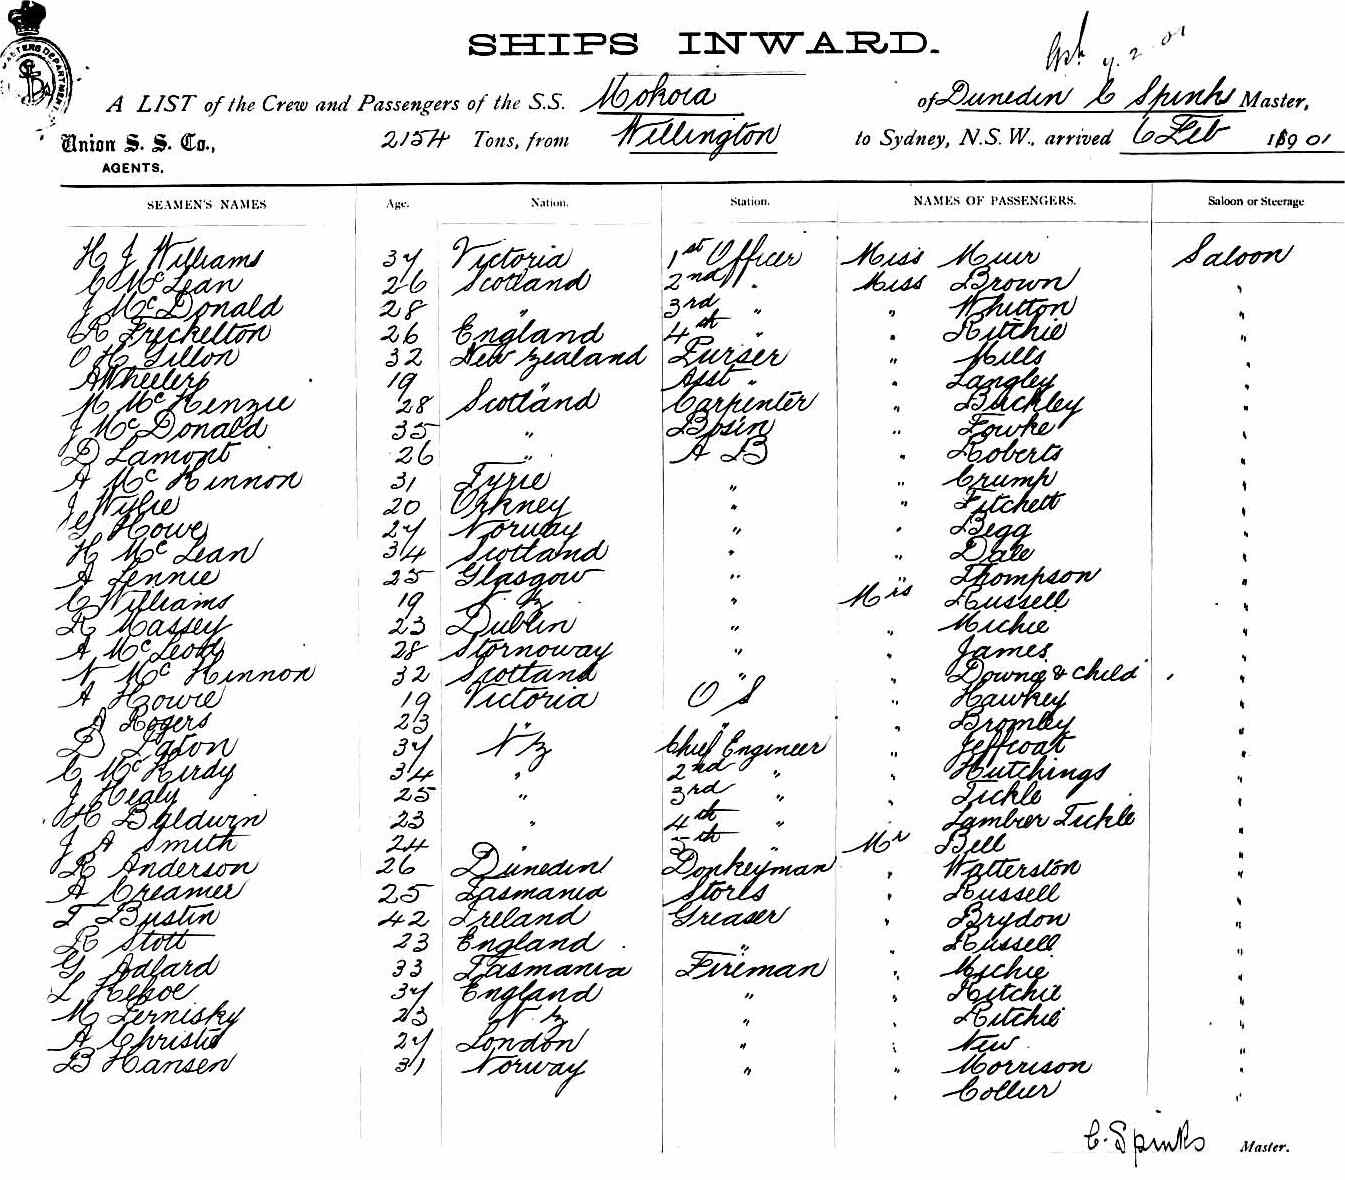 SHIPS INWARD.
A LIST of the Crew and Passengers of the S.S. Mokoia of Dunedin C Spinks Master,
Union S. S. Co., 2154 Tons, from Wellington to Sydney, N.S.W., arrived 6 Feb 1901
AGENTS.
SEAMEN'S NAMES Age. Nation. Station. NAMES OF PASSENGERS. Saloon or Steerage
H J Williams 37 Victoria 1st Officer Miss Muir Saloon
C McLean 26 Scotland 2nd " Miss Brown "
J McDonald 28 " 3rd " " Whitton "
R Freckelton 26 England 4th " " Ritchie "
O H Gillon 32 New Zealand Purser " Mills "
A Wheeler 19 " Asst " " Langley "
M McKenzie 28 Scotland Carpenter " Buckley "
J McDonald 35 " Bosin " Fowke "
D Lamont 26 " A B " Roberts "
A McKinnon 31 Tyrie " " Crump "
J Wylie 20 Orkney " " Fitchett "
G Howe 27 Norway " " Begg "
H McLean 34 Scotland " " Dale "
A Lennie 25 Glasgow " " Thompson "
C Williams 19 N Z " Mrs Russell "
R Massey 23 Dublin " " Michie "
A McLeod 28 Stornoway " " James "
N McKinnon 32 Scotland " " Downie & Child "
A Howie 19 Victoria O S " Hawkey "
A Rogers 23 " " " Bromley "
D Eaton 37 N Z Chief Engineer " Jeffcoat "
C McKirdy 34 " 2nd " " Hutchings "
J Healy 25 " 3rd " " Tickle "
H Baldwin 23 " 4th " " Lambeer Tickle "
J A Smith 24 " 5th " Mr Bell "
R Anderson 26 Dunedin Donkeyman " Watterston "
A Creamer 25 Tasmania Stores " Russell "
T Bustin 42 Ireland Greaser " Brydon "
R Stott 23 England " " Russell "
G Adlard 33 Tasmania Fireman " Michie "
L Kehoe 37 England " " Ritchie "
M Lernisky 23 N Z " " Ritchie "
A Christie 27 London " " New "
B Hansen 31 Norway " " Morrison "
" Collier "
C. Spinks Master.